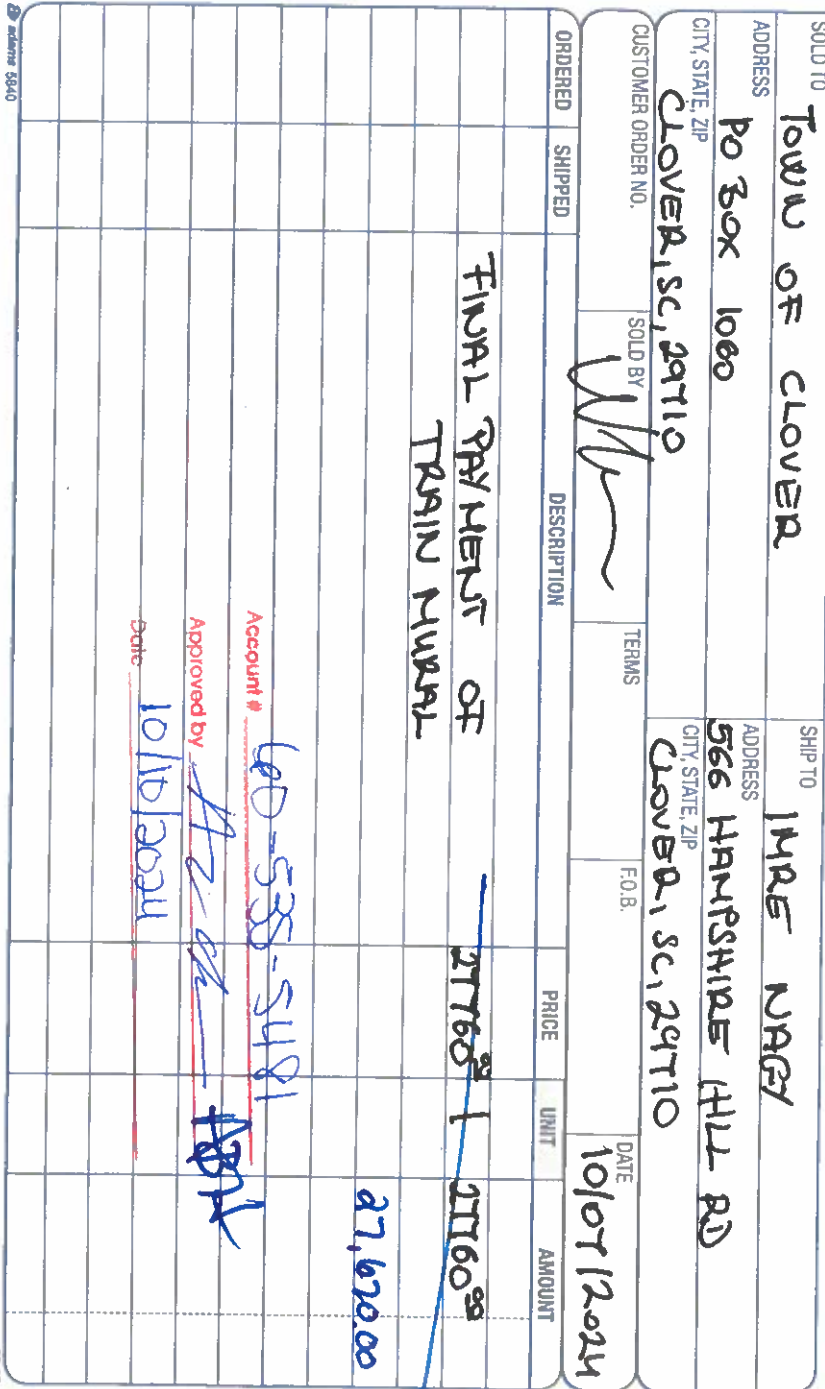 SOLD TO
TOWN OF CLOVER
ADDRESS
PO BOX 1060
CITY, STATE, ZIP
CLOVER, SC, 29710
SHIP TO
IMRE NAGY
ADDRESS
566 HAMPSHIRE HILL RD
CITY, STATE, ZIP
CLOVER, SC, 29710
CUSTOMER ORDER NO. SOLD BY TERMS F.O.B. DATE
10/07/2024
ORDERED SHIPPED DESCRIPTION PRICE UNIT AMOUNT
FINAL PAYMENT OF 27760.00 1 27760.00
TRAIN MURAL
27,670.00
Account # 600-535-5481
Approved by
Date 10/10/2024
adams 5840